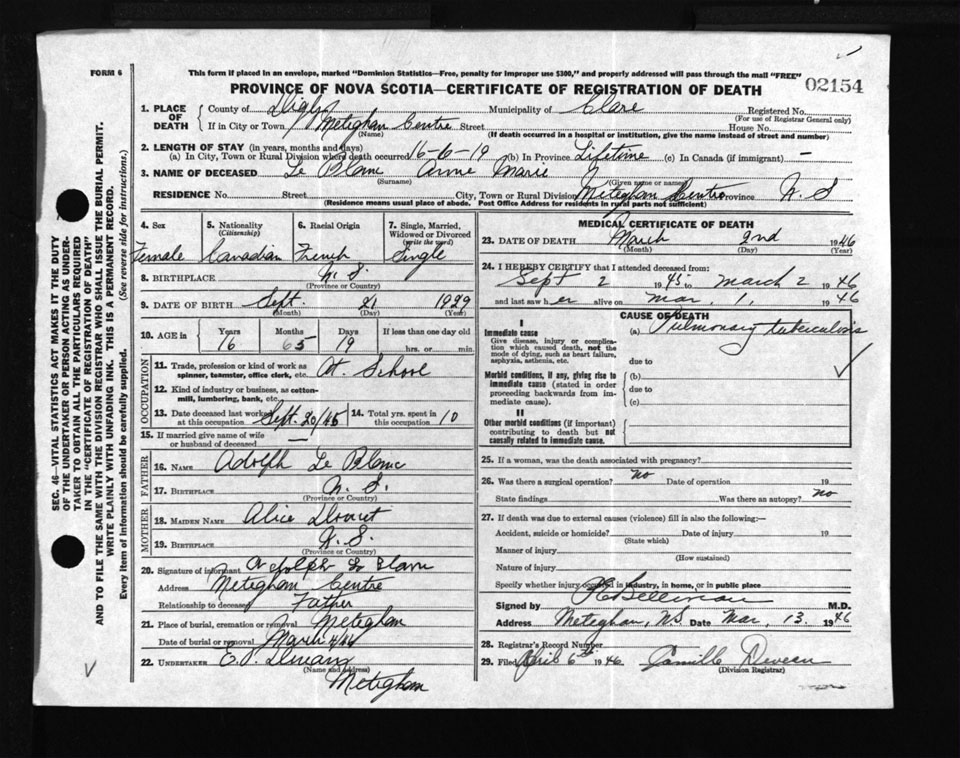 FORM 6
This form if placed in an envelope, marked "Dominion Statistics—Free, penalty for improper use $300," and properly addressed will pass through the mail "FREE"
PROVINCE OF NOVA SCOTIA—CERTIFICATE OF REGISTRATION OF DEATH
02154
1. PLACE OF DEATH
County of Digby Municipality of Clare Registered No.
(For use of Registrar General only)
If in City or Town Meteghan Centre Street House No.
(Name) (If death occurred in a hospital or institution, give the name instead of street and number)
2. LENGTH OF STAY (in years, months and days)
(a) In City, Town or Rural Division where death occurred 16-6-19 (b) In Province Lifetime (c) In Canada (if immigrant) —
3. NAME OF DECEASED Le Blanc Anne Marie
(Surname) (Given name or names)
RESIDENCE No. Street City, Town or Rural Division Meteghan Centre N. S
(Residence means usual place of abode. Post Office Address for residents in rural parts not sufficient)
4. Sex 5. Nationality (Citizenship) 6. Racial Origin 7. Single, Married, Widowed or Divorced (write the word)
Female Canadian French Single
8. BIRTHPLACE N. S.
(Province or Country)
9. DATE OF BIRTH Sept. 21 1929
(Month) (Day) (Year)
10. AGE in Years Months Days If less than one day old
16 5 19 hrs. or min.
OCCUPATION
11. Trade, profession or kind of work as spinner, teamster, office clerk, etc. At School
12. Kind of industry or business, as cotton-mill, lumbering, bank, etc.
13. Date deceased last worked at this occupation Sept. 20/45 14. Total yrs. spent in this occupation 10
15. If married give name of wife or husband of deceased —
FATHER
16. NAME Adolph Le Blanc
17. BIRTHPLACE N. S.
(Province or Country)
MOTHER
18. MAIDEN NAME Alice
19. BIRTHPLACE N. S.
(Province or Country)
20. Signature of informant Adolph Le Blanc
Address Meteghan Centre
Relationship to deceased Father
21. Place of burial, cremation or removal Meteghan
Date of burial or removal March 4/46
22. UNDERTAKER E. J.
(Name and Address)
Meteghan
MEDICAL CERTIFICATE OF DEATH
23. DATE OF DEATH March 2nd 1946
(Month) (Day) (Year)
24. I HEREBY CERTIFY that I attended deceased from:
Sept 2 1945 to March 2 1946
and last saw her alive on Mar. 1, 1946
CAUSE OF DEATH
I
Immediate cause (a) Pulmonary tuberculosis
Give disease, injury or complication which caused death, not the mode of dying, such as heart failure, asphyxia, asthenia, etc.
due to
Morbid conditions, if any, giving rise to immediate cause (stated in order proceeding backwards from immediate cause).
(b)
due to
(c)
II
Other morbid conditions (if important) contributing to death but not causally related to immediate cause.
25. If a woman, was the death associated with pregnancy?
26. Was there a surgical operation? no Date of operation 19
State findings Was there an autopsy? no
27. If death was due to external causes (violence) fill in also the following:—
Accident, suicide or homicide? Date of injury 19
(State which)
Manner of injury
(How sustained)
Nature of injury
Specify whether injury occurred in industry, in home, or in public place
Signed by Belliveau M.D.
Address Meteghan, N.S. Date Mar. 13. 1946
28. Registrar's Record Number
29. Filed April 6th 1946 Camille Deveau
(Division Registrar)
SEC. 46—VITAL STATISTICS ACT MAKES IT THE DUTY OF THE UNDERTAKER OR PERSON ACTING AS UNDERTAKER TO OBTAIN ALL THE PARTICULARS REQUIRED IN THE "CERTIFICATE OF REGISTRATION OF DEATH" AND TO FILE THE SAME WITH THE DIVISION REGISTRAR WHO SHALL ISSUE THE BURIAL PERMIT.
WRITE PLAINLY WITH UNFADING INK. THIS IS A PERMANENT RECORD.
Every item of information should be carefully supplied. (See reverse side for instructions.)